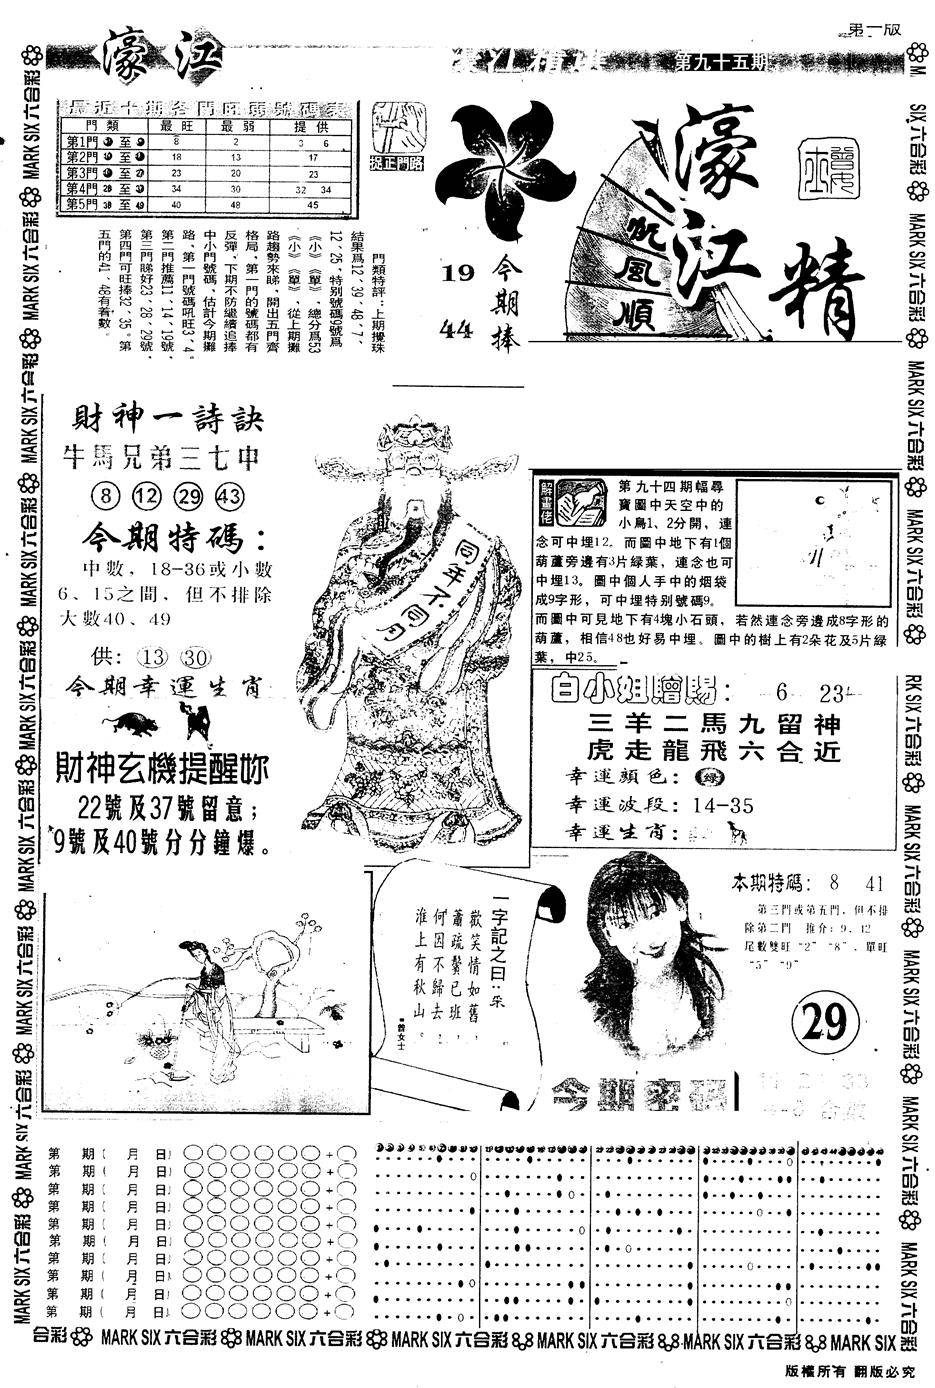 第一版
濠江
濠江精選
第九十五期
最近十期各門旺弱號碼表
門類 最旺 最弱 提供
第1門 至 8 2 3 6
第2門 至 18 13 17
第3門 至 23 20 23
第4門 28 至 34 30 32 34
第5門 38 至 49 40 48 45
捉正門路
門類特評:上期攪珠
結果爲12、39、48、7、
12、25,特别號碼9號爲
《小》《單》,總分爲53
《小》《單》,從上期攤
路趨勢來睇,開出五門齊
格局,第一門的號碼都有
反彈,下期不防繼續追捧
中小門號碼,估計今期攤
路,第一門號碼吼旺3、4。
第二門推薦11、14、19號,
第三門睇好23、28、29號,
第四門可旺捧32、35。第
五門的41、46有着數。
今期捧
19
44
帆風順
濠江精
財神一詩訣
牛馬兄弟三七中
8 12 29 43
今期特碼:
中數,18-36或小數
6、15之間,但不排除
大數40、49
供:13 30
今期幸運生肖
財神玄機提醒妳
22號及37號留意;
9號及40號分分鐘爆。
同年不同月
解畫佬
第九十四期幅尋
寶圖中天空中的
小鳥1、2分開,連
念可中埋12。而圖中地下有1個
葫蘆旁邊有3片緑葉,連念也可
中埋13。圖中個人手中的烟袋
成9字形,可中埋特别號碼9。
而圖中可見地下有4塊小石頭,若然連念旁邊成8字形的
葫蘆,相信48也好易中埋。圖中的樹上有2朵花及5片緑
葉,中25。
白小姐贈賜: 6 23
三羊二馬九留神
虎走龍飛六合近
幸運顏色:緑
幸運波段:14-35
幸運生肖:
一字記之曰:采
歡笑情如舊,
蕭疏鬢已班,
何因不歸去;
淮上有秋山。
曾女士
本期特碼: 8 41
第三門或第五門,但不排
除第二門 推介:9、12
尾數雙旺“2”“8”,單旺
“5”“9”
29
今期密碼
第 期( 月 日)
第 期( 月 日)
第 期( 月 日)
第 期( 月 日)
第 期( 月 日)
第 期( 月 日)
第 期( 月 日)
第 期( 月 日)
第 期( 月 日)
第 期( 月 日)
合彩 MARK SIX 六合彩 MARK SIX 六合彩 MARK SIX 六合彩 MARK SIX 六合彩 MARK SIX 六合彩 MARK SIX
版權所有 翻版必究